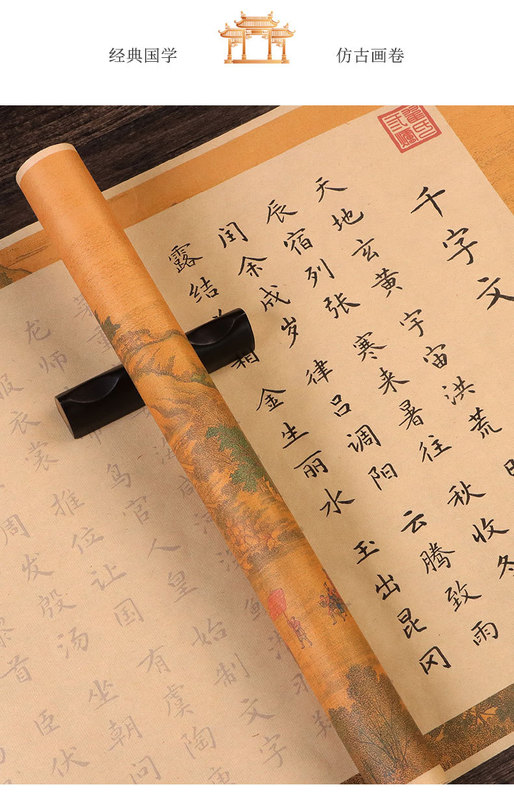 经典国学
仿古画卷
千字文
天地玄黄 宇宙洪荒
辰宿列张 寒来暑往 秋收冬
闰余成岁 律吕调阳 云腾致雨
露结 霜 金生丽水 玉出昆冈
龙师 鸟官人皇 始制文字
服衣裳 推位让国 有虞陶
周发殷汤 坐朝问
首 臣伏